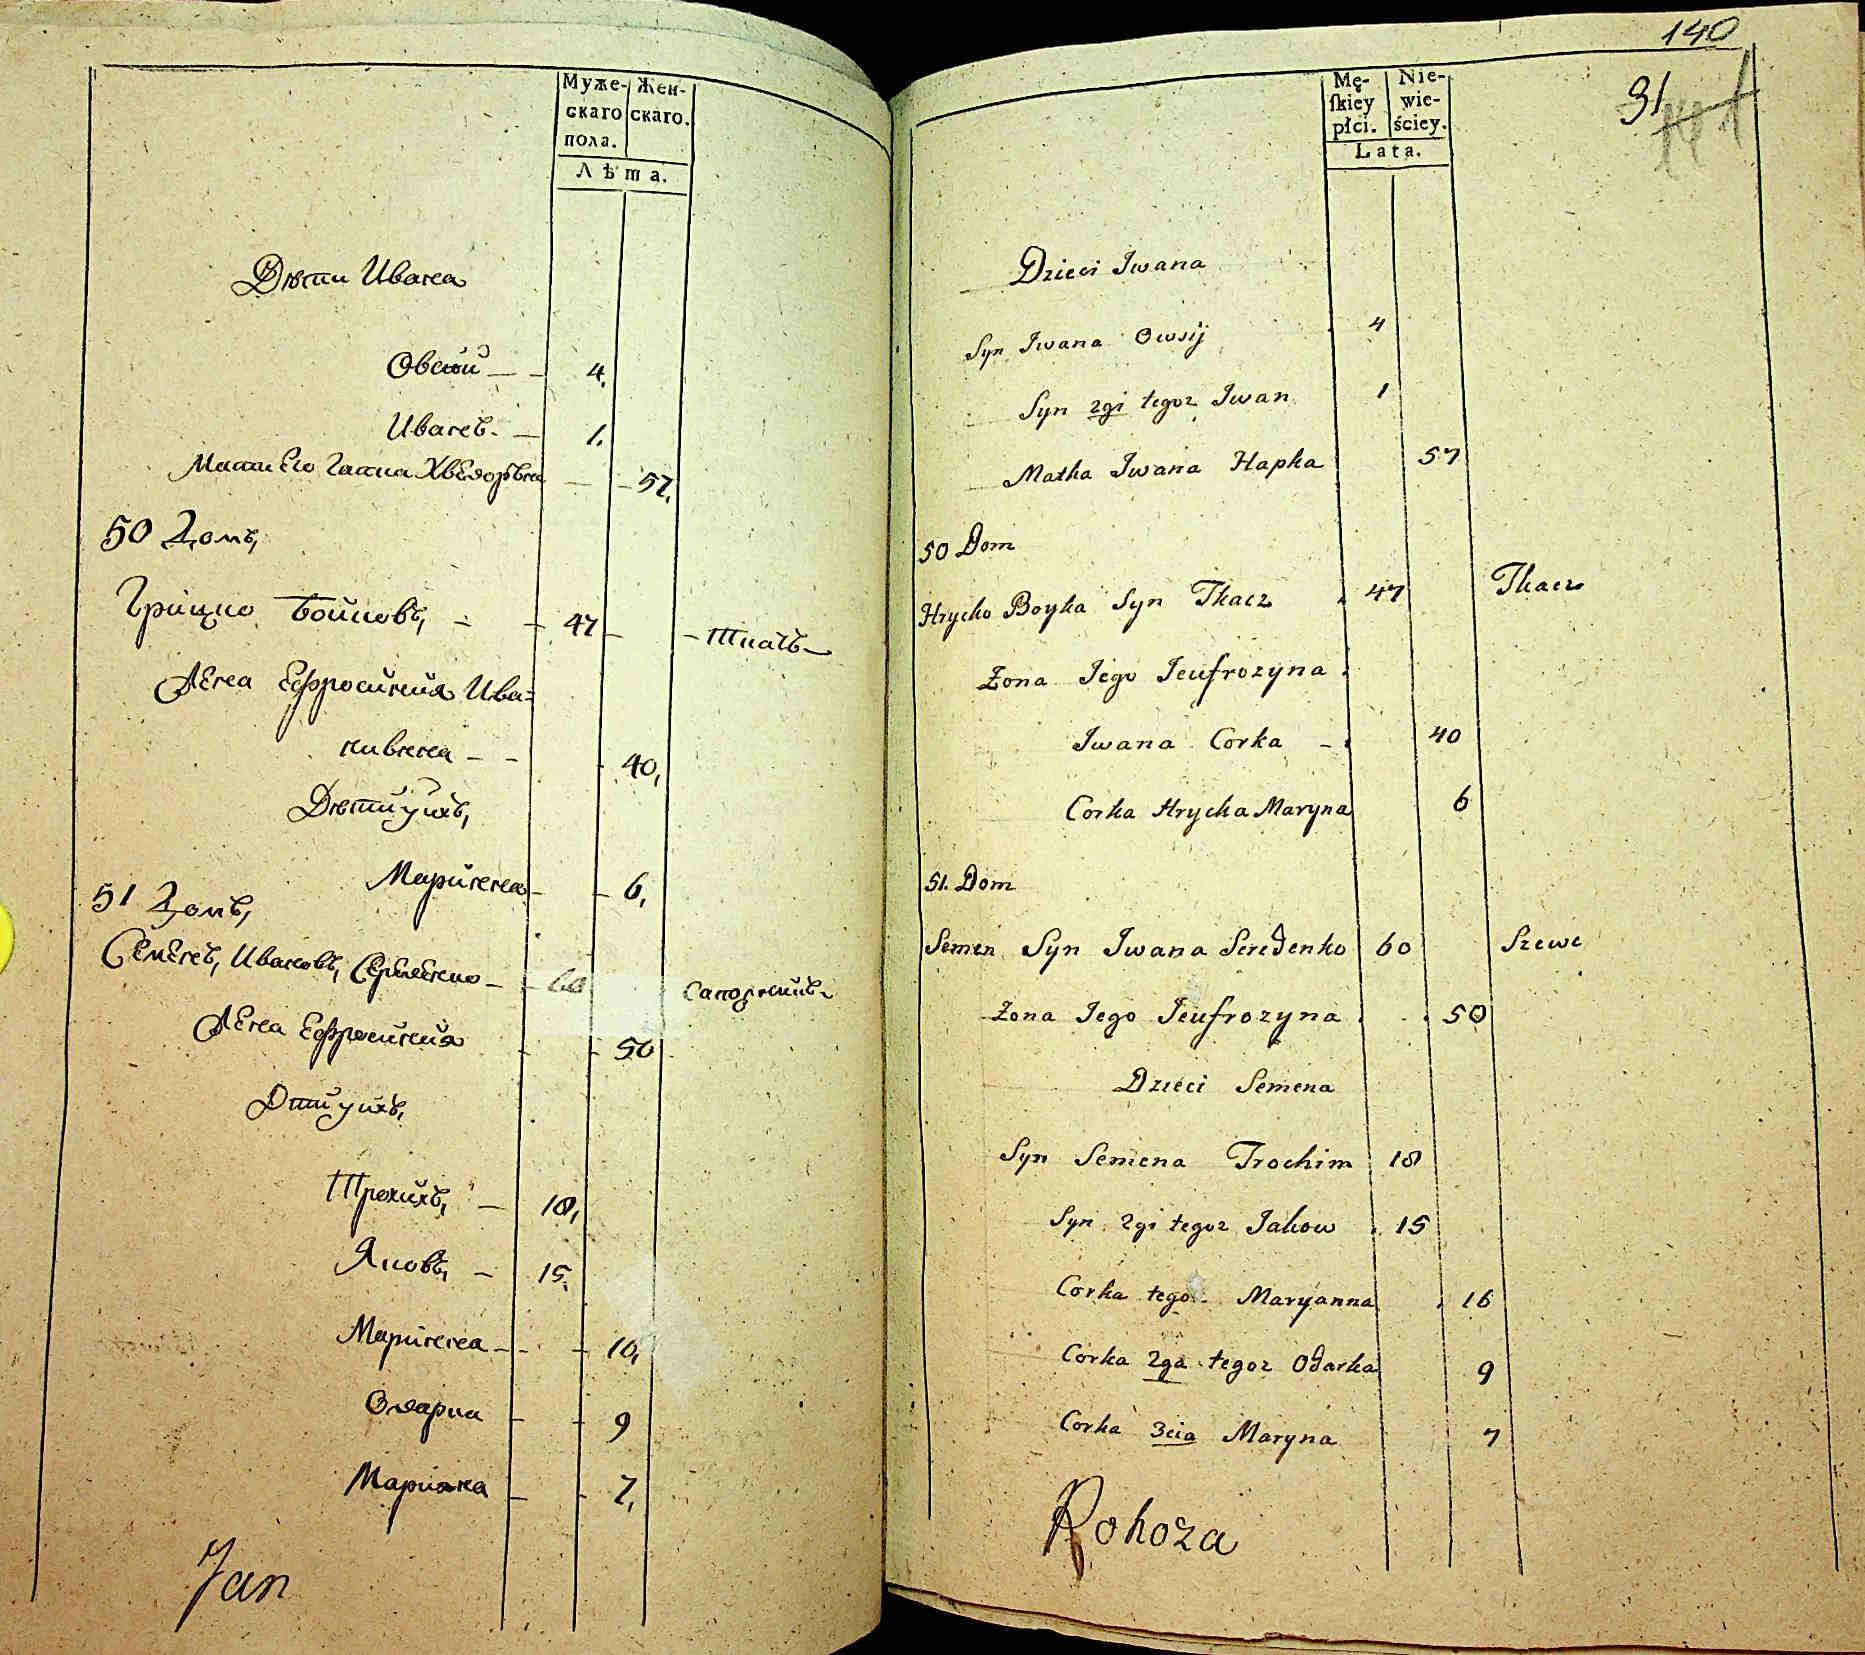 Муже- Жен-
скаго скаго.
пола.
Лѣта.
Дѣти Ивана
Овсій 4.
Иванъ. 1.
Мати Его Гапка Хведоръвна 57.
50 Домъ,
Грицко Бойковъ, 47 Ткачъ
Жена Ефросинія Ива=
нивнна 40,
Дѣти ихъ,
Маринна 6,
51 Домъ,
Семенъ, Ивановъ, 60 Сапожникъ
Жена Ефросинія 50
Дти ихъ,
Трохимъ, 18,
Яковъ, 15.
Маринна 16,
Одарка 9
7,
Jan
140
91
Mę- Nie-
ſkiey wie-
płci. ściey.
Lata.
Dzieci Iwana
Syn Iwana Owsij 4
Syn 2gi tegoz Iwan 1
Matka Iwana Hapka 57
50 Dom
Hrycko Boyka Syn Tkacz 47 Tkacz
Żona Jego Jeufrozyna
Iwana Corka 40
Corka Hrycka Maryna 6
51. Dom
Semen Syn Iwana Seredenko 60 Szewc
Żona Jego Jeufrozyna 50
Dzieci Semena
Syn Semena Trochim 18
Syn 2gi tegoz Jakow 15
Corka tego Maryanna 16
Corka 2ga tegoz Odarka 9
Corka 3cia Maryna 7
Rohoza